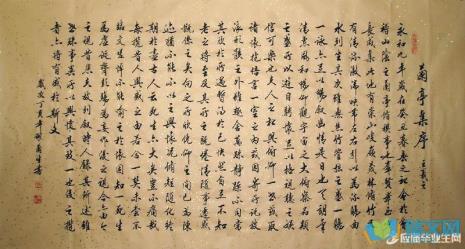 蘭亭集序 王羲之
永和九年歲在癸丑暮春之初會於會
稽山陰之蘭亭脩禊事也群賢畢至少
長咸集此地有崇山峻嶺茂林脩竹又
有清流激湍映帶左右引以為流觴曲
水列坐其次雖無絲竹管弦之盛一觴
一詠亦足以暢敘幽情是日也天朗氣
清惠風和暢仰觀宇宙之大俯察品類
之盛所以遊目騁懷足以極視聽之娛
信可樂也夫人之相與俯仰一世或取
諸懷抱悟言一室之內或因寄所託放
浪形骸之外雖趣舍萬殊靜躁不同當
其欣於所遇暫得於己快然自足不知
老之將至及其所之既倦情隨事遷感
慨係之矣向之所欣俛仰之間已為陳
跡猶不能不以之興懷況脩短隨化終
期於盡古人云死生亦大矣豈不痛哉
每覽昔人興感之由若合一契未嘗不
臨文嗟悼不能喻之於懷固知一死生
為虛誕齊彭殤為妄作後之視今亦由今
之視昔悲夫故列敘時人錄其所述雖
世殊事異所以興懷其致一也後之覽
者亦將有感於斯文
歲次丁亥年
应届毕业生网